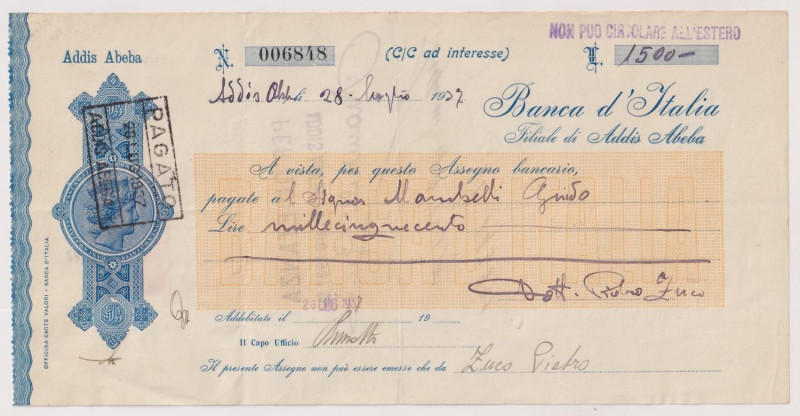 NON PUO CIRCOLARE ALL'ESTERO
Addis Abeba N. 006848 (C/C ad interesse) L. 1500-
28 Luglio 1937
Banca d'Italia
Filiale di Addis Abeba
PAGATO
A vista, per questo Assegno bancario,
pagate al Signor Guido
Lire millecinquecento
Dott. Pietro Zuco
28 LUG 1937
Addebitato il 19
Il Capo Ufficio
Il presente Assegno non può essere emesso che da Zuco Pietro
OFFICINA CARTE VALORI - BANCA D'ITALIA